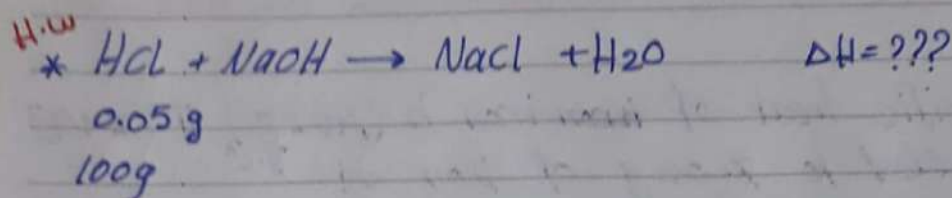 H.W
* HCl + NaOH → Nacl + H2O ΔH = ???
0.05 g
100g